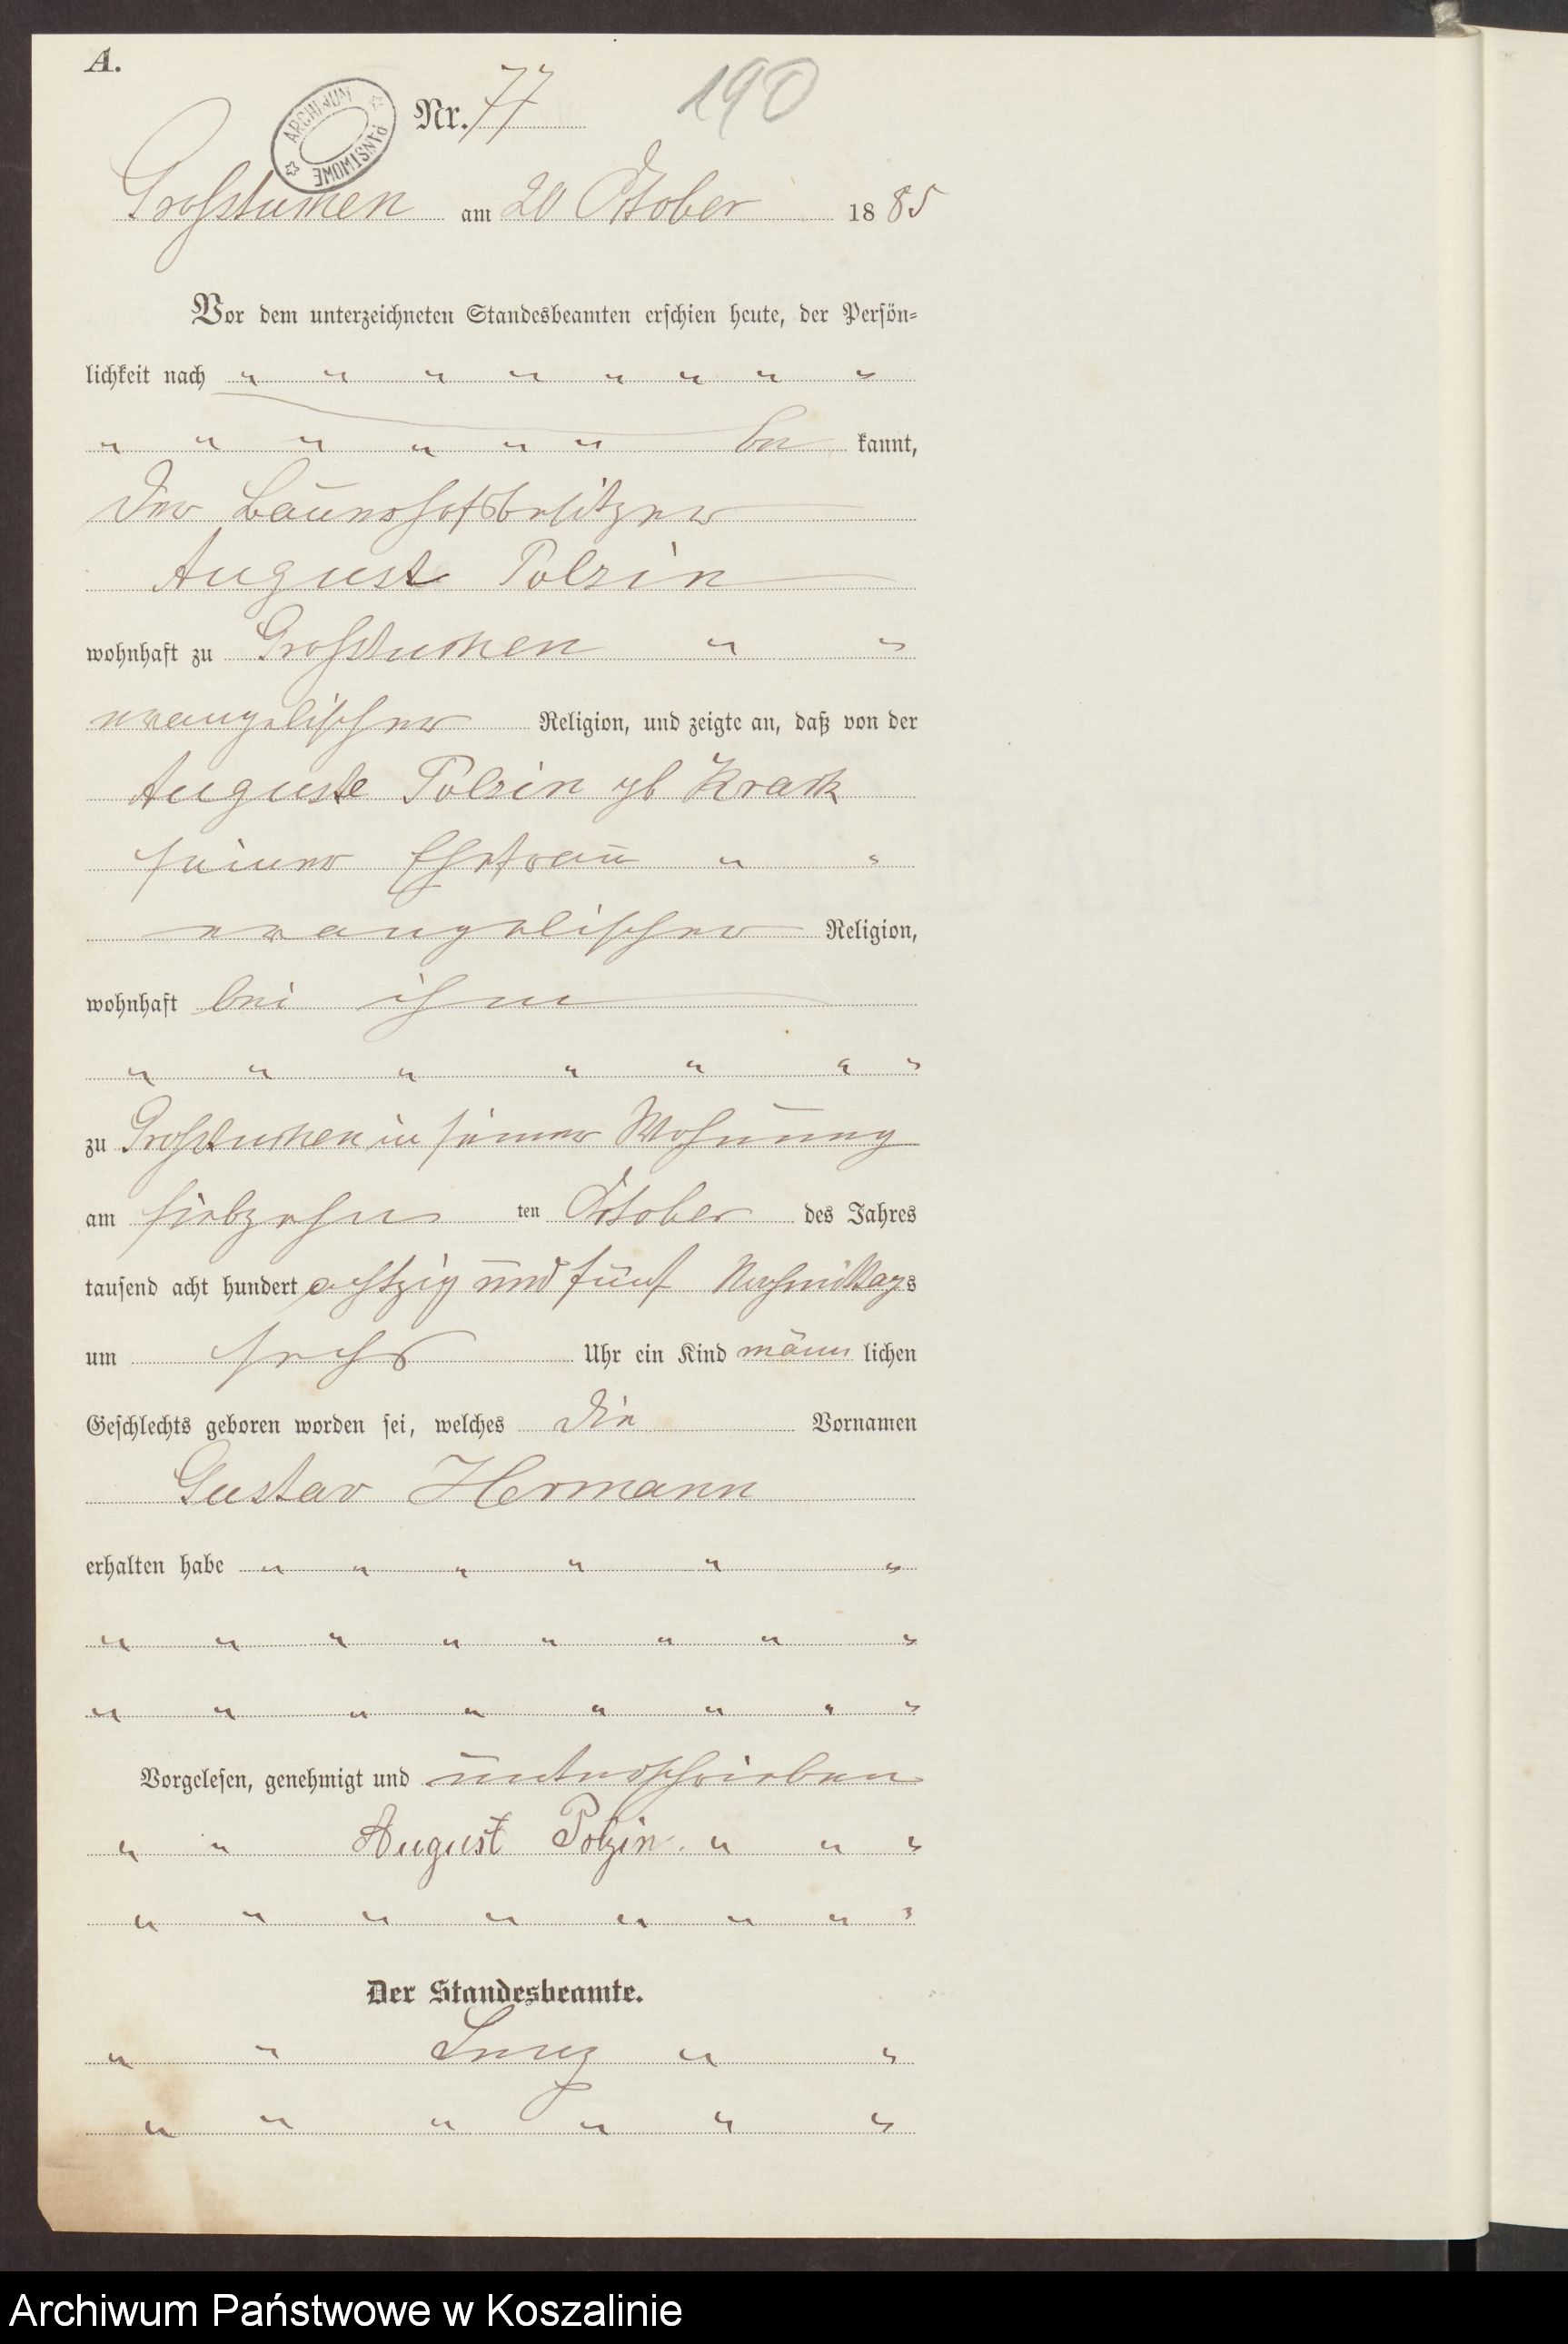 A.
Nr. 77
190
ARCHIWUM PAŃSTWOWE
Großtuchen am 20 October 1885
Vor dem unterzeichneten Standesbeamten erschien heute, der Persön=
lichkeit nach " " " " " " " "
" " " " " " be kannt,
der Bauerhofsbesitzer
August Polzin
wohnhaft zu Großtuchen " "
evangelischer Religion, und zeigte an, daß von der
Auguste Polzin geb
seiner Ehefrau " "
evangelischer Religion,
wohnhaft bei ihm
" " " " " " "
zu Großtuchen in seiner Wohnung
am siebzehn ten October des Jahres
tausend acht hundert achtzig und fünf Nachmittags
um sechs Uhr ein Kind männ lichen
Geschlechts geboren worden sei, welches die Vornamen
Gustav Hermann
erhalten habe " " " " " "
" " " " " " " "
" " " " " " " "
Vorgelesen, genehmigt und unterschrieben
" " August Polzin. " " "
" " " " " " " "
Der Standesbeamte.
" " " "
" " " " " "
Archiwum Państwowe w Koszalinie